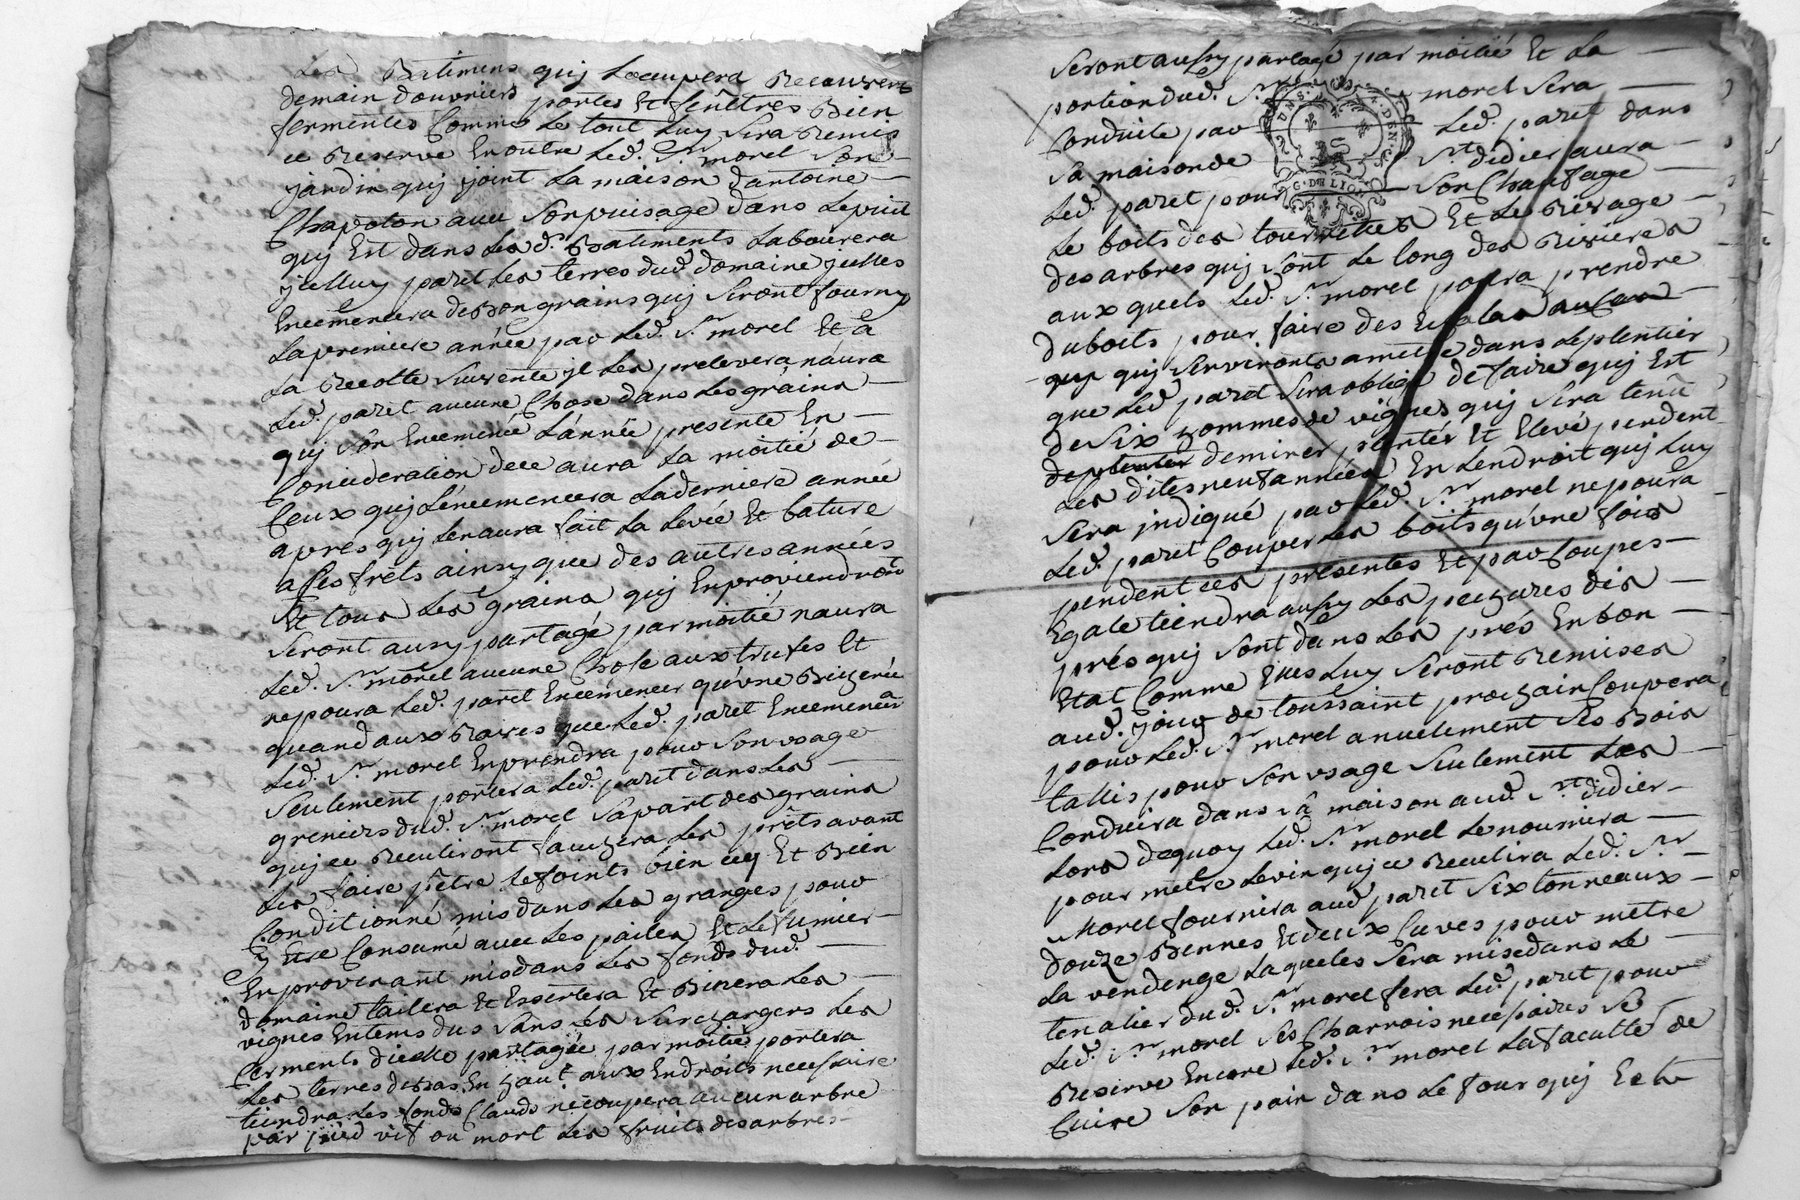 Les Batimens quj Loccupera Recouvers
demain douvriers portes Et fenêtres Bien
fermentes Comme Le tout Luy Sera Remis
ce Reserve Enoutre Led. Sr. morel Son
jardin quj joint La maison dantoine
Chapoton avec Son puisage dans Lepuit
quj Est dans Lesd. Batiments Labourera
jcelluy paret Les terres dud domaine jcelles
Encemencera de Bon grains quj Seront fourny
La premiere année par Led. Sr. morel Et a
La Recolte Suivente jl Les prelevera naura
Led. paret aucune Chose dans Les grains
quj Son Encemencé Lannée presente En
Concideration de ce aura La moitié de
Ceux quj Lencemencera La derniere année
apres quj Lenaura fait La Levée Et bature
a Ses frets ainsy que des autres années
Et tous Les grains quj Enproviendront
Seront aussy partagé par moitié naura
Led. Sr. morel aucune Chose aux trufes Et
nepoura Led. paret Encemencer quvne
quand aux Raves que Led. paret Encemencera
Led. Sr. morel Enprendra pour Son vsage
Seulement portera Led. paret dans Les
greniers dud. Sr. morel Sa part des grains
quj ce Reculiront fauchera Les prêts avant
Les faire Les foints bien Et Bien
Conditionné mis dans Les granges pour
y Etre Consumé avec Les pailes Et Le fumier
Enprovenant mis dans Les fonds dud.
domaine tailera Et Essertera Et Binera Les
vignes Entems dus Sans Les Surchargers Les
Cerments dicelle partagée par moitié portera
Les terres debas En haut aux Endroits necessaire
tiendra Les fonds Claud necoupera aucun arbre
par pied vif ou mort Les fruits des arbres
Seront aussy partagé par moitié Et La
portion dud. Sr. morel Sera
Conduite par Led. paret dans
Sa maison de St. didier aura
Led. paret pour Son Chaufage
Le boits des tourettes Et Le Rivage
des arbres quj Sont Le long des Rivieres
aux quels Led. Sr. morel poura prendre
du boits pour faire des
quj Servironts a metre dans Le plentier
que Led. paret Sera obligé de faire quj Est
de Six hommes de vignes quj Sera tenu
de miner planter Et Elevé pendent
Les dites neuf années En Lendroit quj Luy
Sera jndiqué par Led. Sr. morel ne poura
Led. paret Couper Les boits quvne fois
pendent ces presentes Et par Coupes
Egale tiendra aussy Les des
prés quj Sont dans Les prés En bon
Etat Comme Elles Luy Seront Remises
aud. jour de toussaint prochain Coupera
pour Led. Sr. morel anuelement Les Bois
tallis pour Son vsage Seulement Les
Conduira dans Sa maison aud. St. didier
Lors dequoy Led. Sr. morel Le nourrira
pour metre Levin quj ce Reculira Led. Sr.
Morel fournira aud paret Six tonneaux
douze Bennes Et deux Cuves pour metre
La vendenge Laquelle Sera mise dans Le
tenalier dud. Sr. morel fera Led. paret pour
Led. Sr. morel Ses Charrois necessaires Se
Reserve Encore Led. Sr. morel La faculté de
Cuire Son pain dans Le four quj Est
G. DE LION